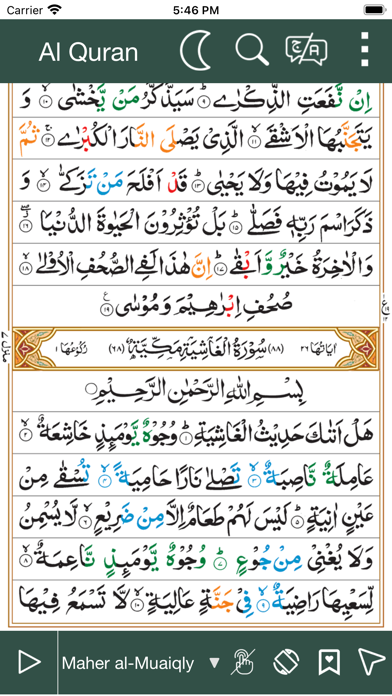 Carrier 5:46 PM
Al Quran
اِنْ نَّفَعَتِ الذِّكْرٰىؕ ۹ سَيَذَّكَّرُ مَنْ يَّخْشٰىۙ ۱۰ وَ
يَتَجَنَّبُهَا الْاَشْقَىۙ ۱۱ الَّذِىْ يَصْلَى النَّارَ الْكُبْرٰىۚ ۱۲ ثُمَّ
لَا يَمُوْتُ فِيْهَا وَلَا يَحْيٰىؕ ۱۳ قَدْ اَفْلَحَ مَنْ تَزَكّٰىۙ ۱۴ وَ
ذَكَرَ اسْمَ رَبِّهٖ فَصَلّٰىؕ ۱۵ بَلْ تُؤْثِرُوْنَ الْحَيٰوةَ الدُّنْيَا ۱۶
وَالْاٰخِرَةُ خَيْرٌ وَّاَبْقٰىؕ ۱۷ اِنَّ هٰذَا لَفِى الصُّحُفِ الْاُوْلٰىۙ ۱۸
صُحُفِ اِبْرٰهِيْمَ وَمُوْسٰى ۱۹
اٰيَاتُهَا ۲۶ (۸۸) سُوْرَةُ الْغَاشِيَةِ مَكِّيَّةٌ (۶۸) رُكُوْعُهَا ۱
بِسْمِ اللّٰهِ الرَّحْمٰنِ الرَّحِيْمِ
هَلْ اَتٰىكَ حَدِيْثُ الْغَاشِيَةِؕ ۱ وُجُوْهٌ يَّوْمَئِذٍ خَاشِعَةٌۙ ۲
عَامِلَةٌ نَّاصِبَةٌۙ ۳ تَصْلٰى نَارًا حَامِيَةًۙ ۴ تُسْقٰى مِنْ
عَيْنٍ اٰنِيَةٍؕ ۵ لَيْسَ لَهُمْ طَعَامٌ اِلَّا مِنْ ضَرِيْعٍۙ ۶ لَّا يُسْمِنُ
وَلَا يُغْنِىْ مِنْ جُوْعٍؕ ۷ وُجُوْهٌ يَّوْمَئِذٍ نَّاعِمَةٌۙ ۸
لِّسَعْيِهَا رَاضِيَةٌۙ ۹ فِىْ جَنَّةٍ عَالِيَةٍۙ ۱۰ لَّا تَسْمَعُ فِيْهَا
منزل ۷
Maher al-Muaiqly